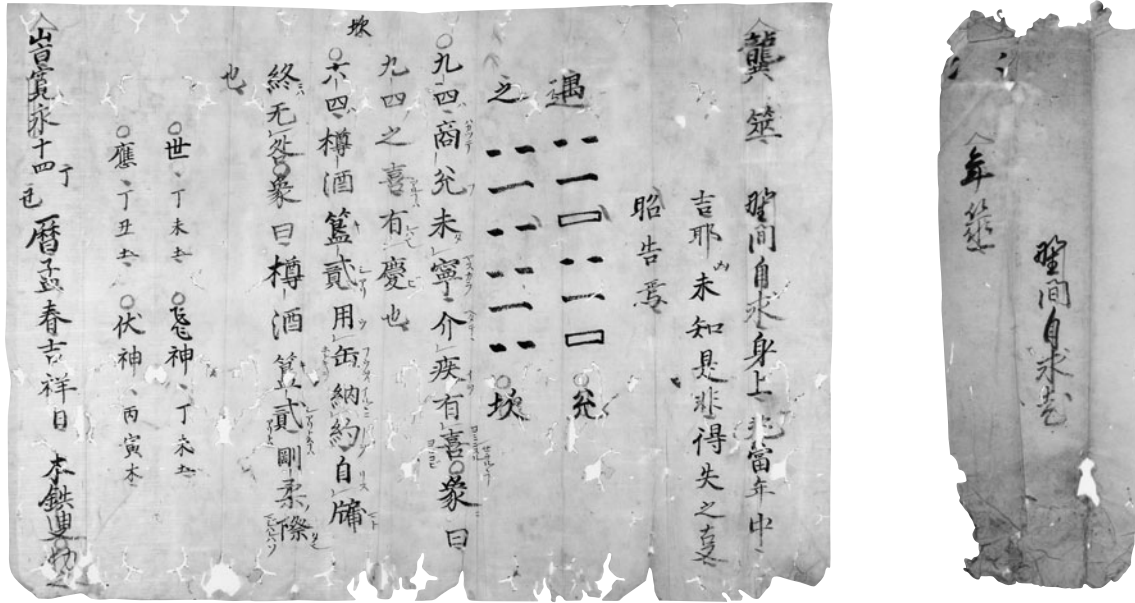 龔筮 野間自求身上 当年中
吉耶凶未知是非得失之
昭告焉
遇 兌
之 坎
○九四商兌未寧介疾有喜○象曰
九四之喜有慶也
坎
○六四樽酒簋貳用缶納約自牖
終无咎○象曰樽酒簋貳剛柔際
也
○世、丁未土 ○飛神、丁未土
○應、丁丑土 ○伏神、丙寅木
寛永十四丁巳暦孟春吉祥日
年筮
野間自求老